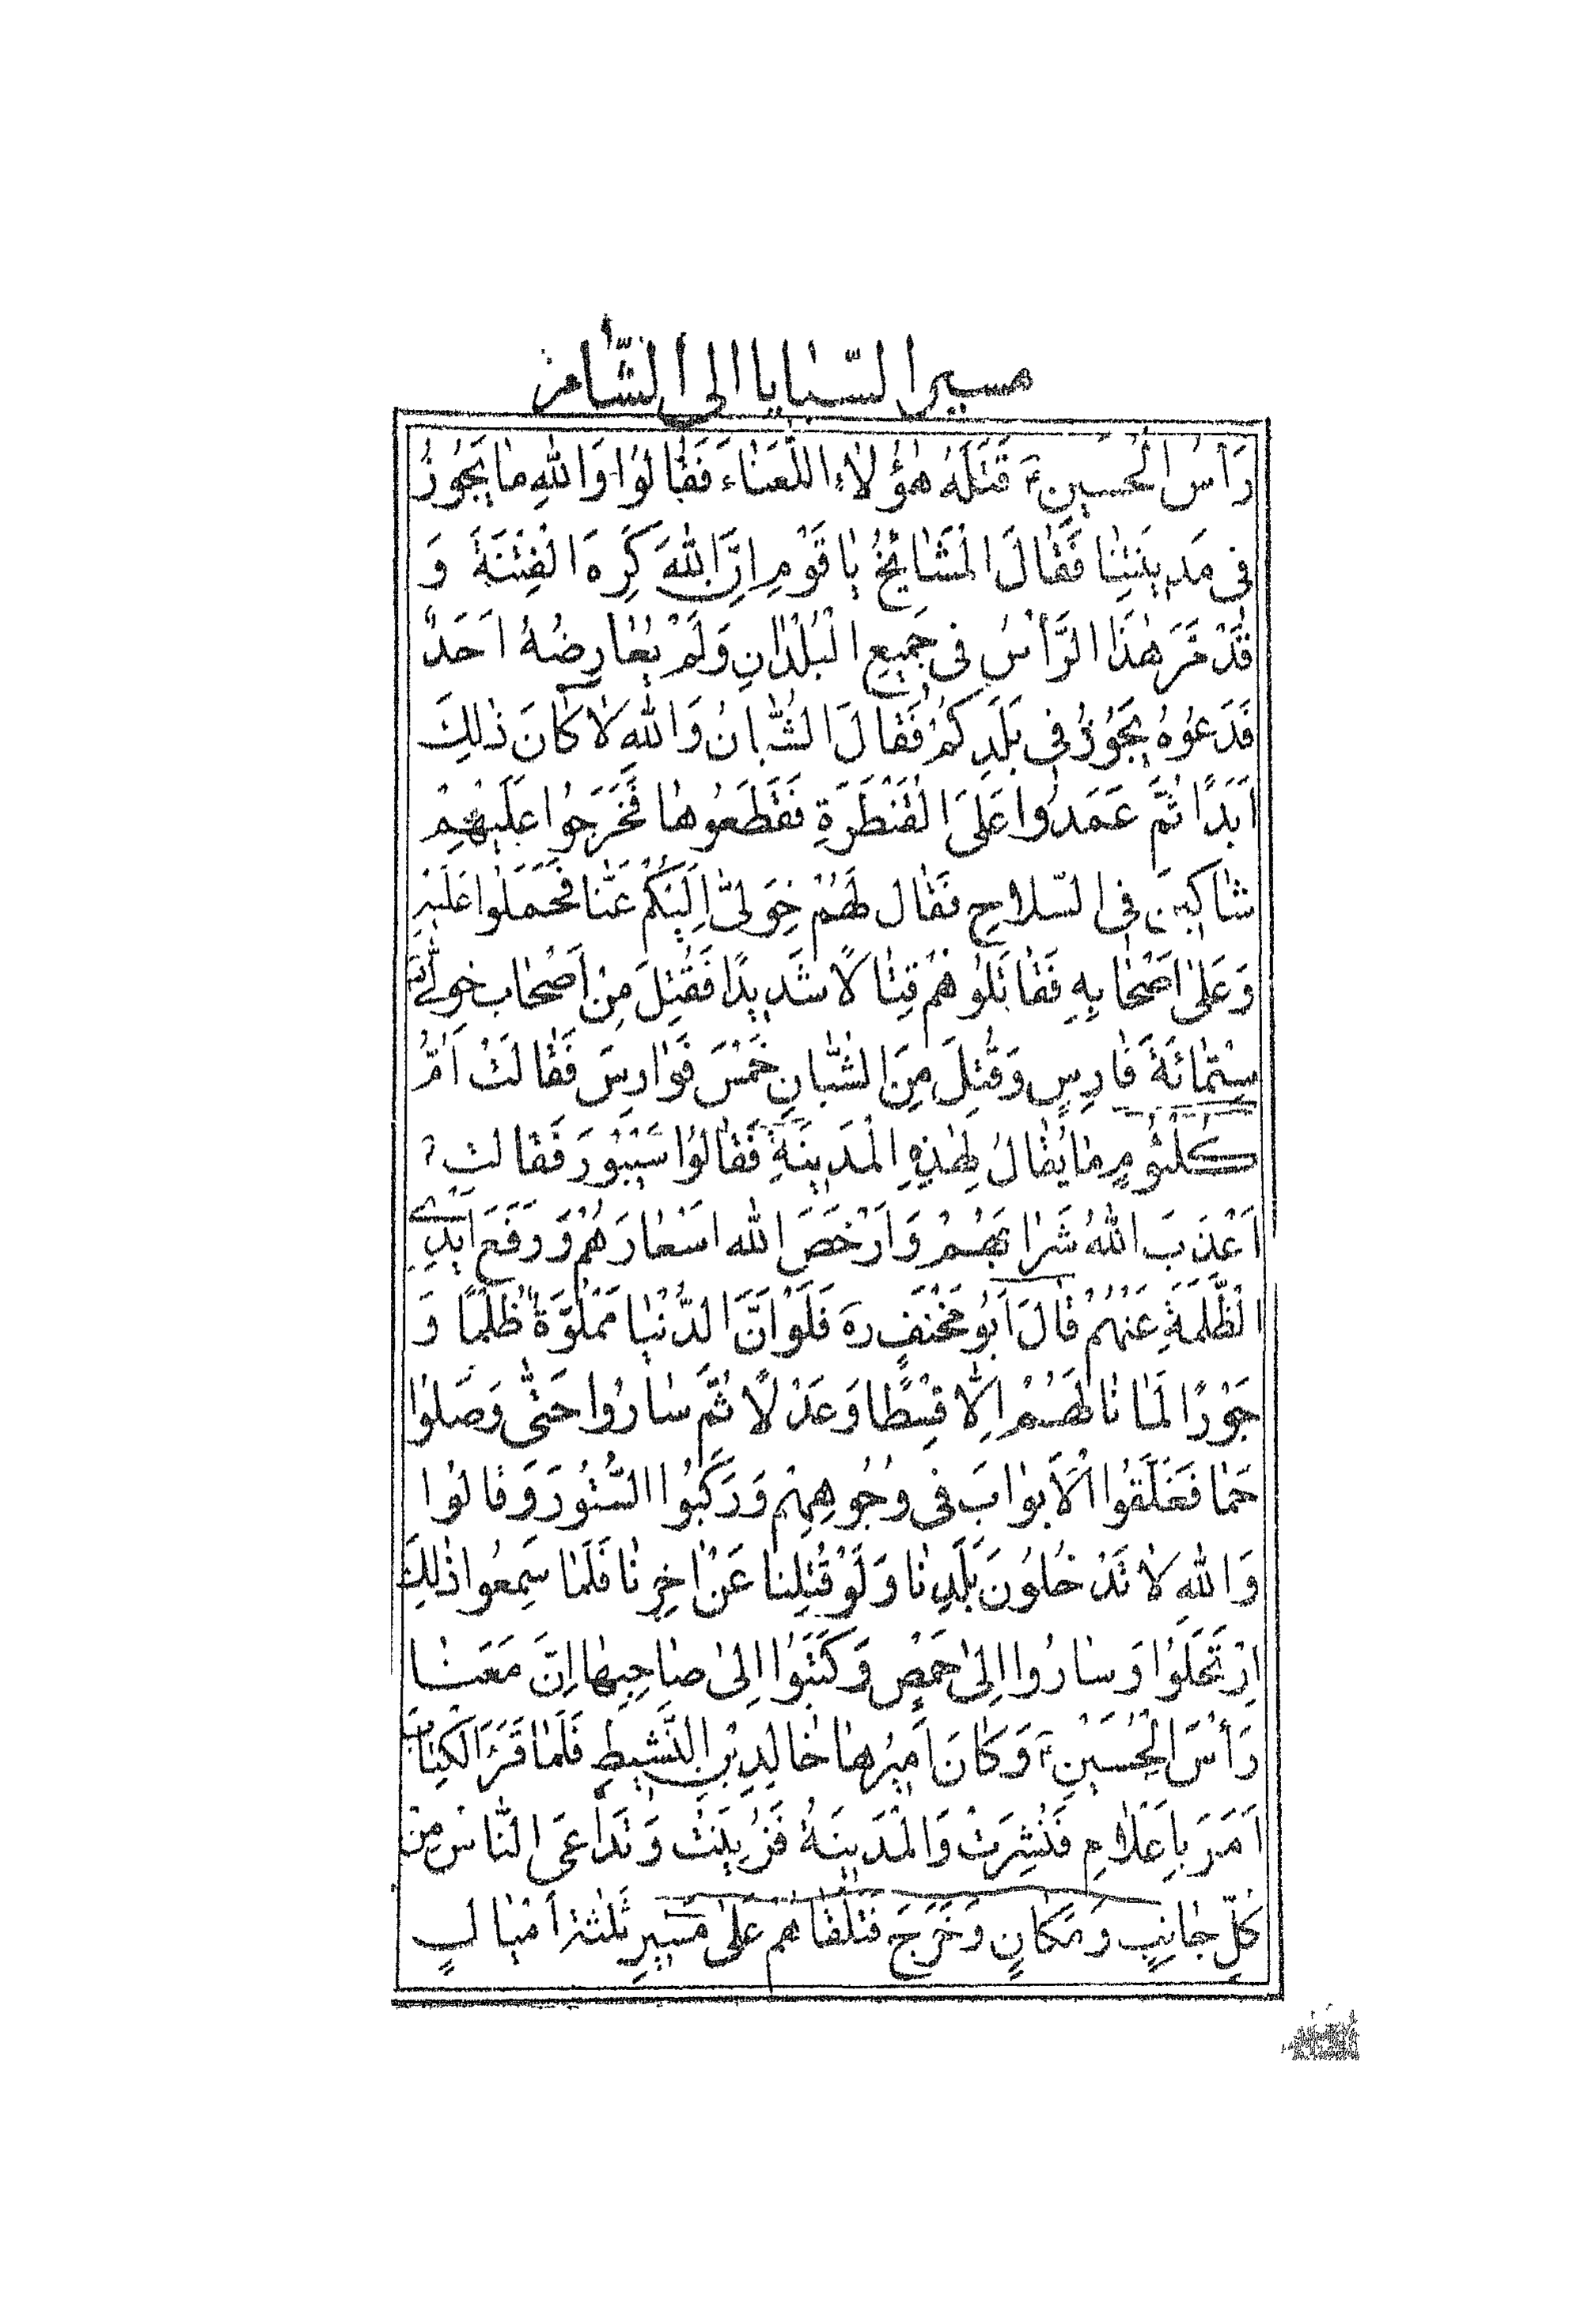 مسير السّبايا الى الشّام
رَأسُ الْحُسينِ ع قَتَلَهُ هٰؤُلاءِ اللُّعَناءِ فَقٰالوُا وَاللهِ مٰا يَجُوزُ
فى مَدينَتِنٰا فَقٰالَ الْمَشٰايِخُ يٰا قَوْمِ اِنَّ اللهَ كَرِهَ الْفِتْنَةَ وَ
قَدْ مَرَّ هٰذَا الرَّأسُ فى جَميعِ الْبُلْدٰانِ وَلَمْ يُعٰارِضْهُ اَحَدٌ
فَدَعُوهُ يَجُوزُ فى بَلَدِكُمْ فَقٰالَ الشُّبّانُ وَاللهِ لاٰ كٰانَ ذٰلِكَ
اَبَدًا ثُمَّ عَمَدُوا عَلَى الْقَنْطَرَةِ فَقَطَعُوهٰا فَخَرَجُوا عَلَيْهِمْ
شٰاكينَ فى السّلاحِ فَقٰالَ لَهُمْ خَوَلىّ اِلَيْكُمْ عَنّا فَحَمَلُوا عَلَيْهِ
وَعَلىٰ اَصْحٰابِهِ فَقٰاتَلُوهُمْ قِتٰالًا شَديدًا فَقُتِلَ مِنْ اَصْحٰابِ خولّى
سِتّمٰائَةَ فٰارِسٍ وَقُتِلَ مِنَ الشُّبّانِ خَمْسَ فَوٰارِسَ فَقٰالَتْ اُمُّ
كُلْثُومٍ مٰا يُقٰالُ لِهٰذِهِ الْمَدينَةِ فَقٰالُوا سَيْبُورَ فَقٰالَتْ ع
اَعْذَبَ اللهُ شَرٰابَهُمْ وَاَرْخَصَ الله اَسْعٰارَهُمْ وَرَفَعَ اَيْدِى
الظَّلَمَةِ عَنْهُمْ قٰالَ اَبُو مَخْنَفٍ ره فَلَوْ اَنَّ الدُّنْيٰا مَمْلُوَّةً ظُلْمًا وَ
جَوْرًا لَمٰا نٰالَهُمْ اِلاّ قِسْطًا وَعَدْلًا ثُمَّ سٰارُوا حَتّى وَصَلُوا
حَمٰا فَغَلَّقُوا الْاَبْوٰابَ فى وُجُوهِهِمْ وَرَكَبُوا السُّتُورَ وَقٰالُوا
وَاللهِ لاٰ تَدْخُلُونَ بَلَدِنٰا وَلَوْ قُتِلْنٰا عَنْ اٰخِرِنٰا فَلَمّا سَمِعُوا ذٰلِكَ
اِرْتَحَلُوا وَسٰارُوا اِلىٰ حَمصٍ وَكَتَبُوا اِلىٰ صٰاحِبِهٰا اِنَّ مَعَنٰا
رَأْسَ الْحُسَيْنِ ع وَكٰانَ اَميرُهٰا خٰالِدِ بْنِ النَّشيطِ فَلَمّا قَرَءَ الْكِتٰابَ
اَمَرَ بِاَعْلاٰمٍ فَنُشِرَتْ وَالْمَدينَةُ فَزُيِّنَتْ وَتَدٰاعَى النّاسُ مِنْ
كُلِّ جٰانِبٍ وَمَكٰانٍ وَخَرَجَ فَتَلَقّاهُمْ عَلىٰ مَسيرِ ثَلٰثَةِ اَمْيٰالٍ